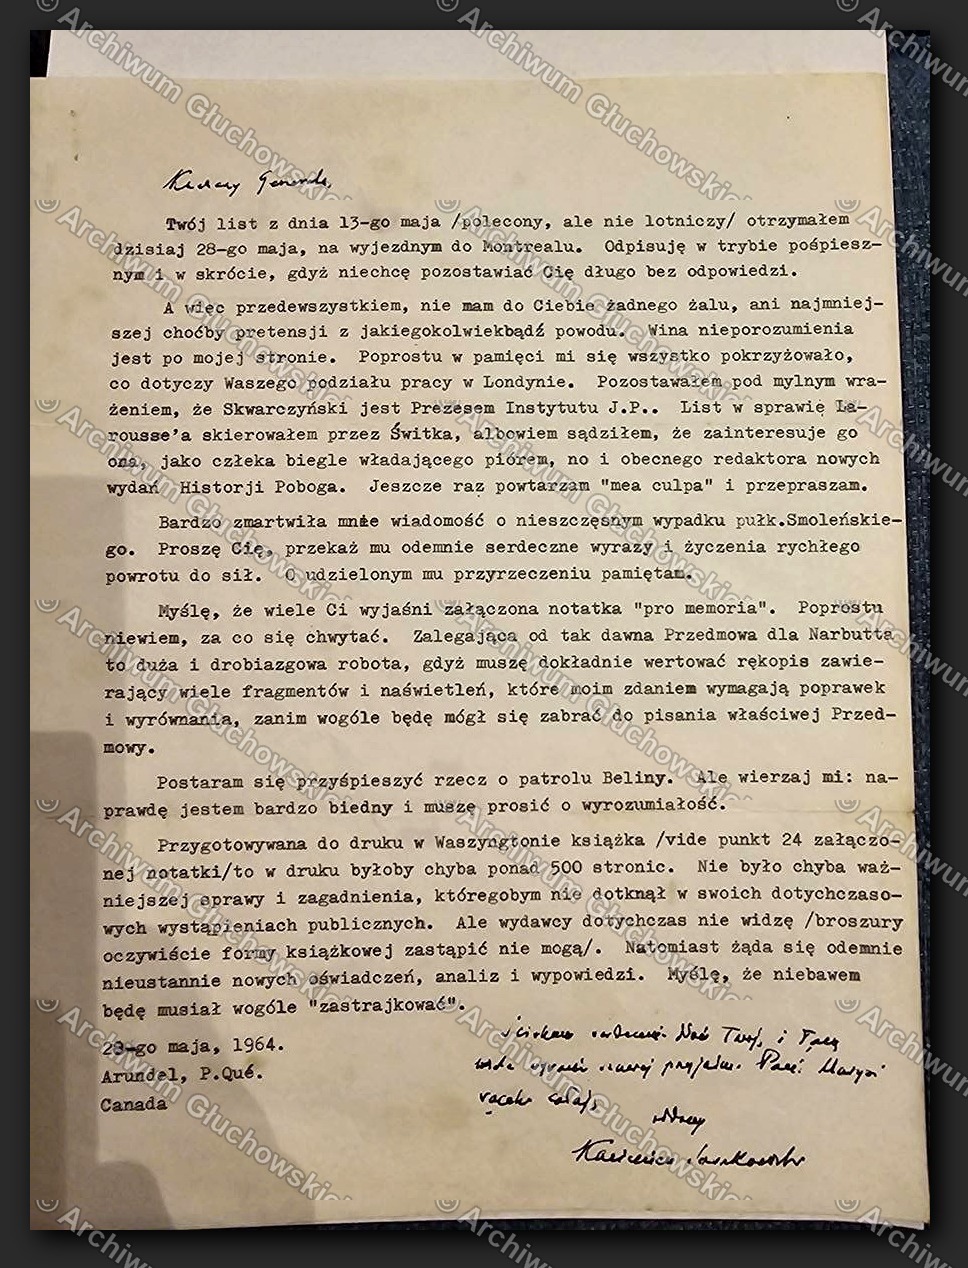 Kochany Generale,
Twój list z dnia 13-go maja /polecony, ale nie lotniczy/ otrzymałem
dzisiaj 28-go maja, na wyjezdnym do Montrealu. Odpisuję w trybie pośpiesz-
nym i w skrócie, gdyż niechcę pozostawiać Cię długo bez odpowiedzi.
A więc przedewszystkiem, nie mam do Ciebie żadnego żalu, ani najmniej-
szej choćby pretensji z jakiegokolwiekbądź powodu. Wina nieporozumienia
jest po mojej stronie. Poprostu w pamięci mi się wszystko pokrzyżowało,
co dotyczy Waszego podziału pracy w Londynie. Pozostawałem pod mylnym wra-
żeniem, że Skwarczyński jest Prezesem Instytutu J.P.. List w sprawię La-
rousse'a skierowałem przez Świtka, albowiem sądziłem, że zainteresuje go
ona, jako człeka biegle władającego piórem, no i obecnego redaktora nowych
wydań Historji Poboga. Jeszcze raz powtarzam "mea culpa" i przepraszam.
Bardzo zmartwiła mnie wiadomość o nieszczęsnym wypadku pułk.Smoleńskie-
go. Proszę Cię, przekaż mu odemnie serdeczne wyrazy i życzenia rychłego
powrotu do sił. O udzielonym mu przyrzeczeniu pamiętam.
Myślę, że wiele Ci wyjaśni załączona notatka "pro memoria". Poprostu
niewiem, za co się chwytać. Zalegająca od tak dawna Przedmowa dla Narbutta
to duża i drobiazgowa robota, gdyż muszę dokładnie wertować rękopis zawie-
rający wiele fragmentów i naświetleń, które moim zdaniem wymagają poprawek
i wyrównania, zanim wogóle będę mógł się zabrać do pisania właściwej Przed-
mowy.
Postaram się przyśpieszyć rzecz o patrolu Beliny. Ale wierzaj mi: na-
prawdę jestem bardzo biedny i muszę prosić o wyrozumiałość.
Przygotowywana do druku w Waszyngtonie książka /vide punkt 24 załączo-
nej notatki/to w druku byłoby chyba ponad 500 stronic. Nie było chyba waż-
niejszej sprawy i zagadnienia, któregobym nie dotknął w swoich dotychczaso-
wych wystąpieniach publicznych. Ale wydawcy dotychczas nie widzę /broszury
oczywiście formy książkowej zastąpić nie mogą/. Natomiast żąda się odemnie
nieustannie nowych oświadczeń, analiz i wypowiedzi. Myślę, że niebawem
będę musiał wogóle "zastrajkować".
28-go maja, 1964.
Arundel, P.Qué.
Canada
Ściskam serdecznie Dłoń Twoją i łączę
wyrazy przyjaźni. Pani Maryni
rączki całuję
Kazimierz Sosnkowski
© Archiwum Głuchowskich